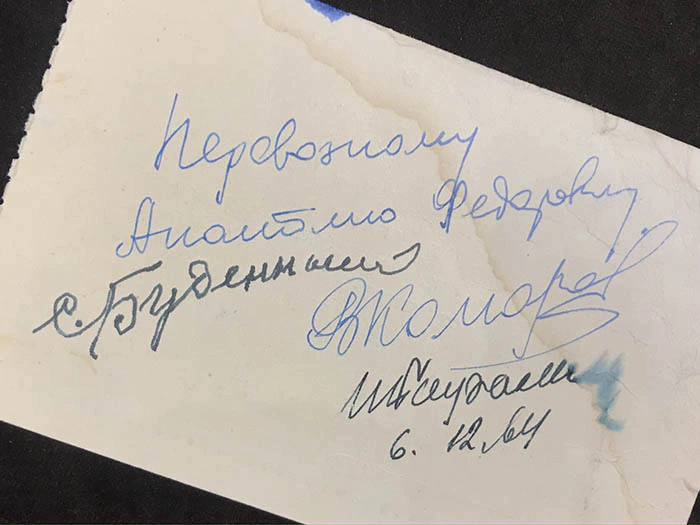 Перевозному
Анатолию Федоровичу
С. Буденный
ВКомаров
6. 12. 64